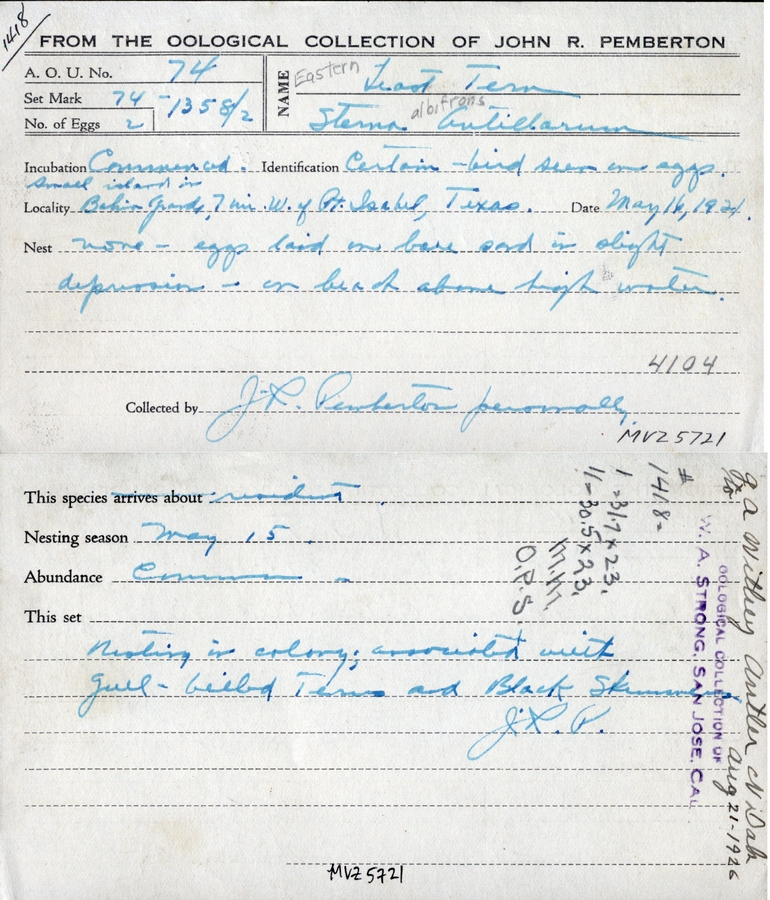 1418
FROM THE OOLOGICAL COLLECTION OF JOHN R. PEMBERTON
A. O. U. No. 74
Set Mark 74 - 1358/2
No. of Eggs 2
NAME Eastern Least Tern
albifrons
Sterna Antillarum
Incubation Commenced. Identification Certain - bird seen on eggs.
small island in
Locality Bahia Grande, 7 mi. W. of Pt. Isabel, Texas. Date May 16, 1921.
Nest none - eggs laid on bare sand in slight
depression - on beach above high water.
4104
Collected by J. R. Pemberton personally.
MVZ 5721
This species arrives about resident.
Nesting season May 15.
Abundance Common.
This set
Nesting in colony; associated with
Gull-billed Terns and Black Skimmers
J. R. P.
# 1418 =
1 = 31.7 x 23.
1/ = 30.5 x 23.
m.m.
O.P.S
OOLOGICAL COLLECTION OF
W. A. STRONG, SAN JOSE, CAL.
G a Withey Antler N Dak
Aug 21-1926
MVZ 5721